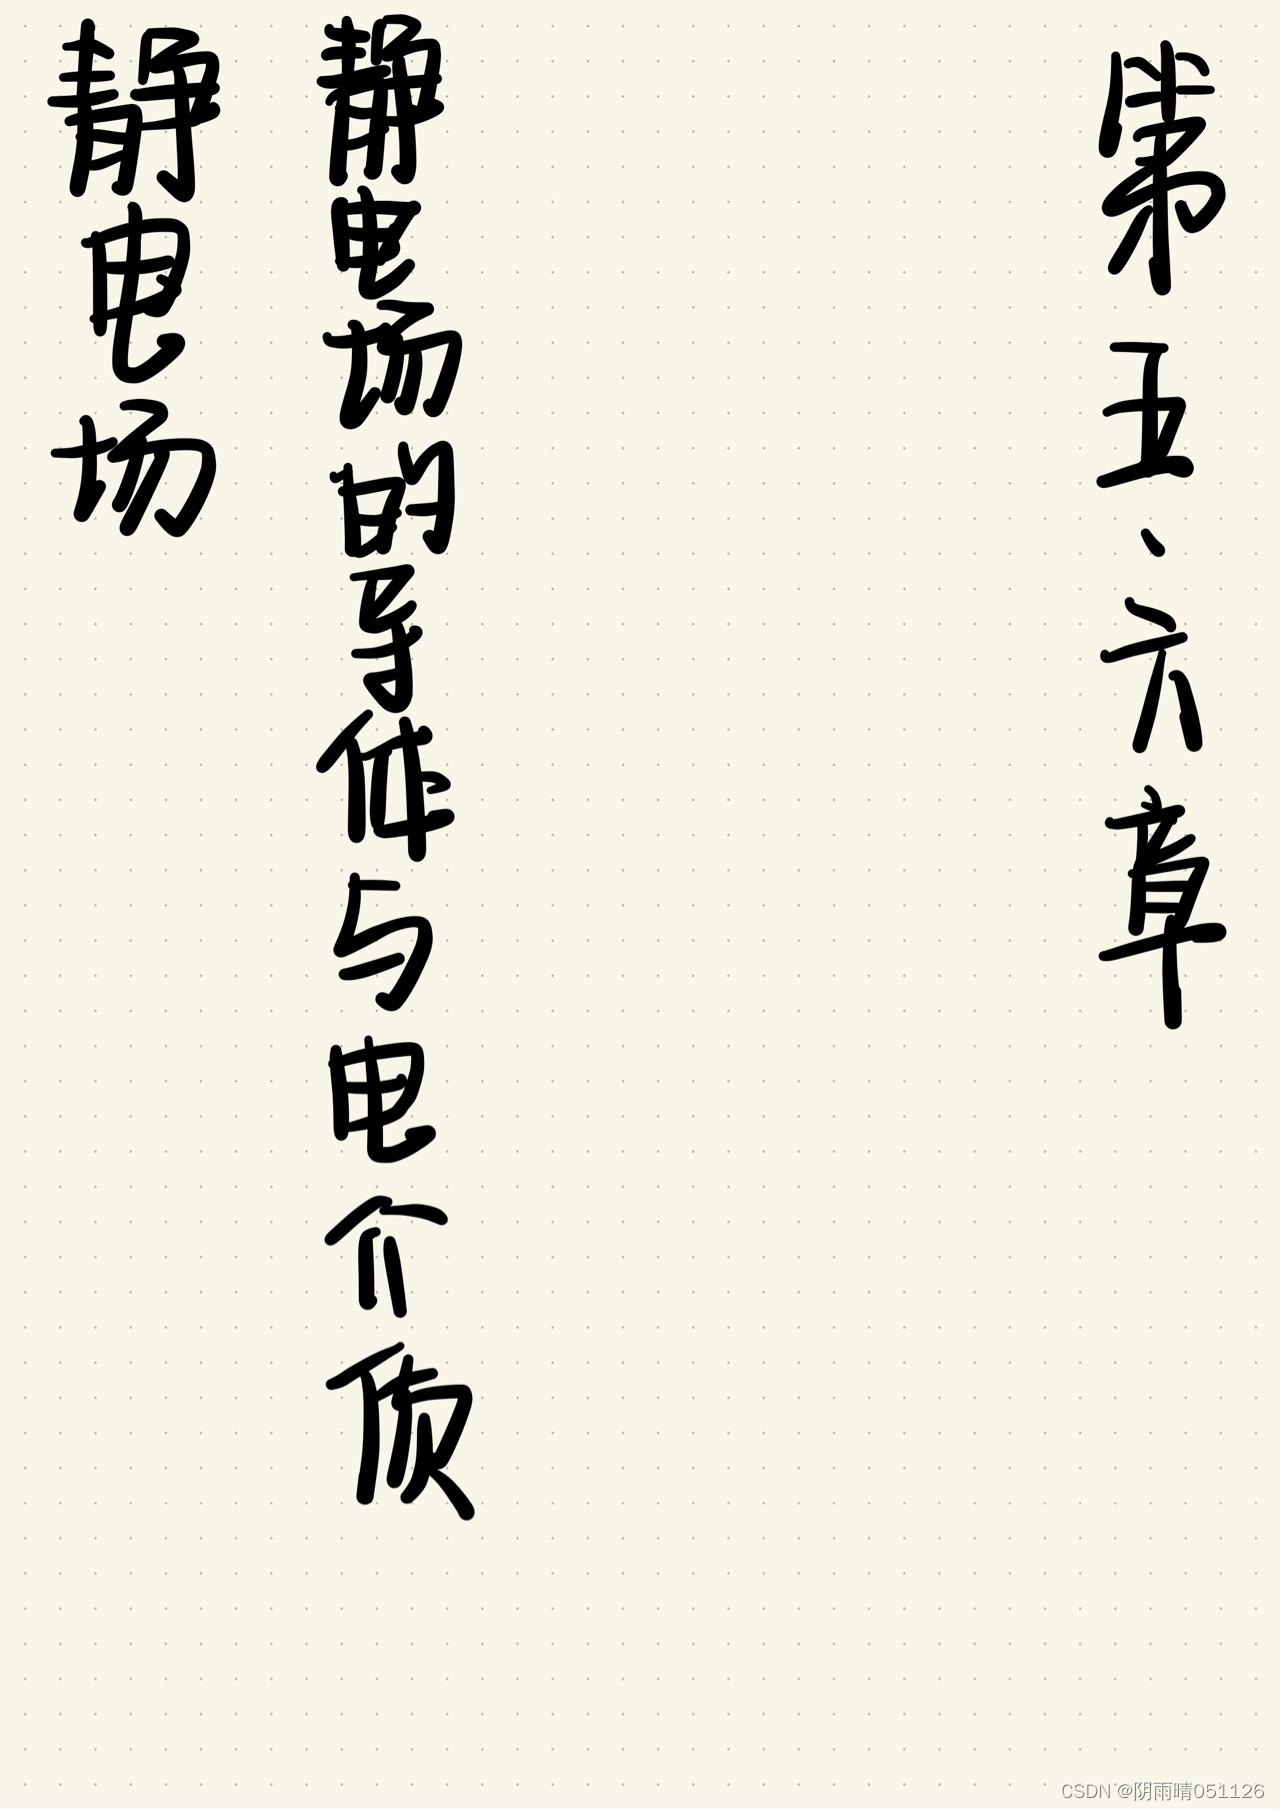 第五、六章
静电场
静电场的导体与电介质
CSDN @阴雨晴051126